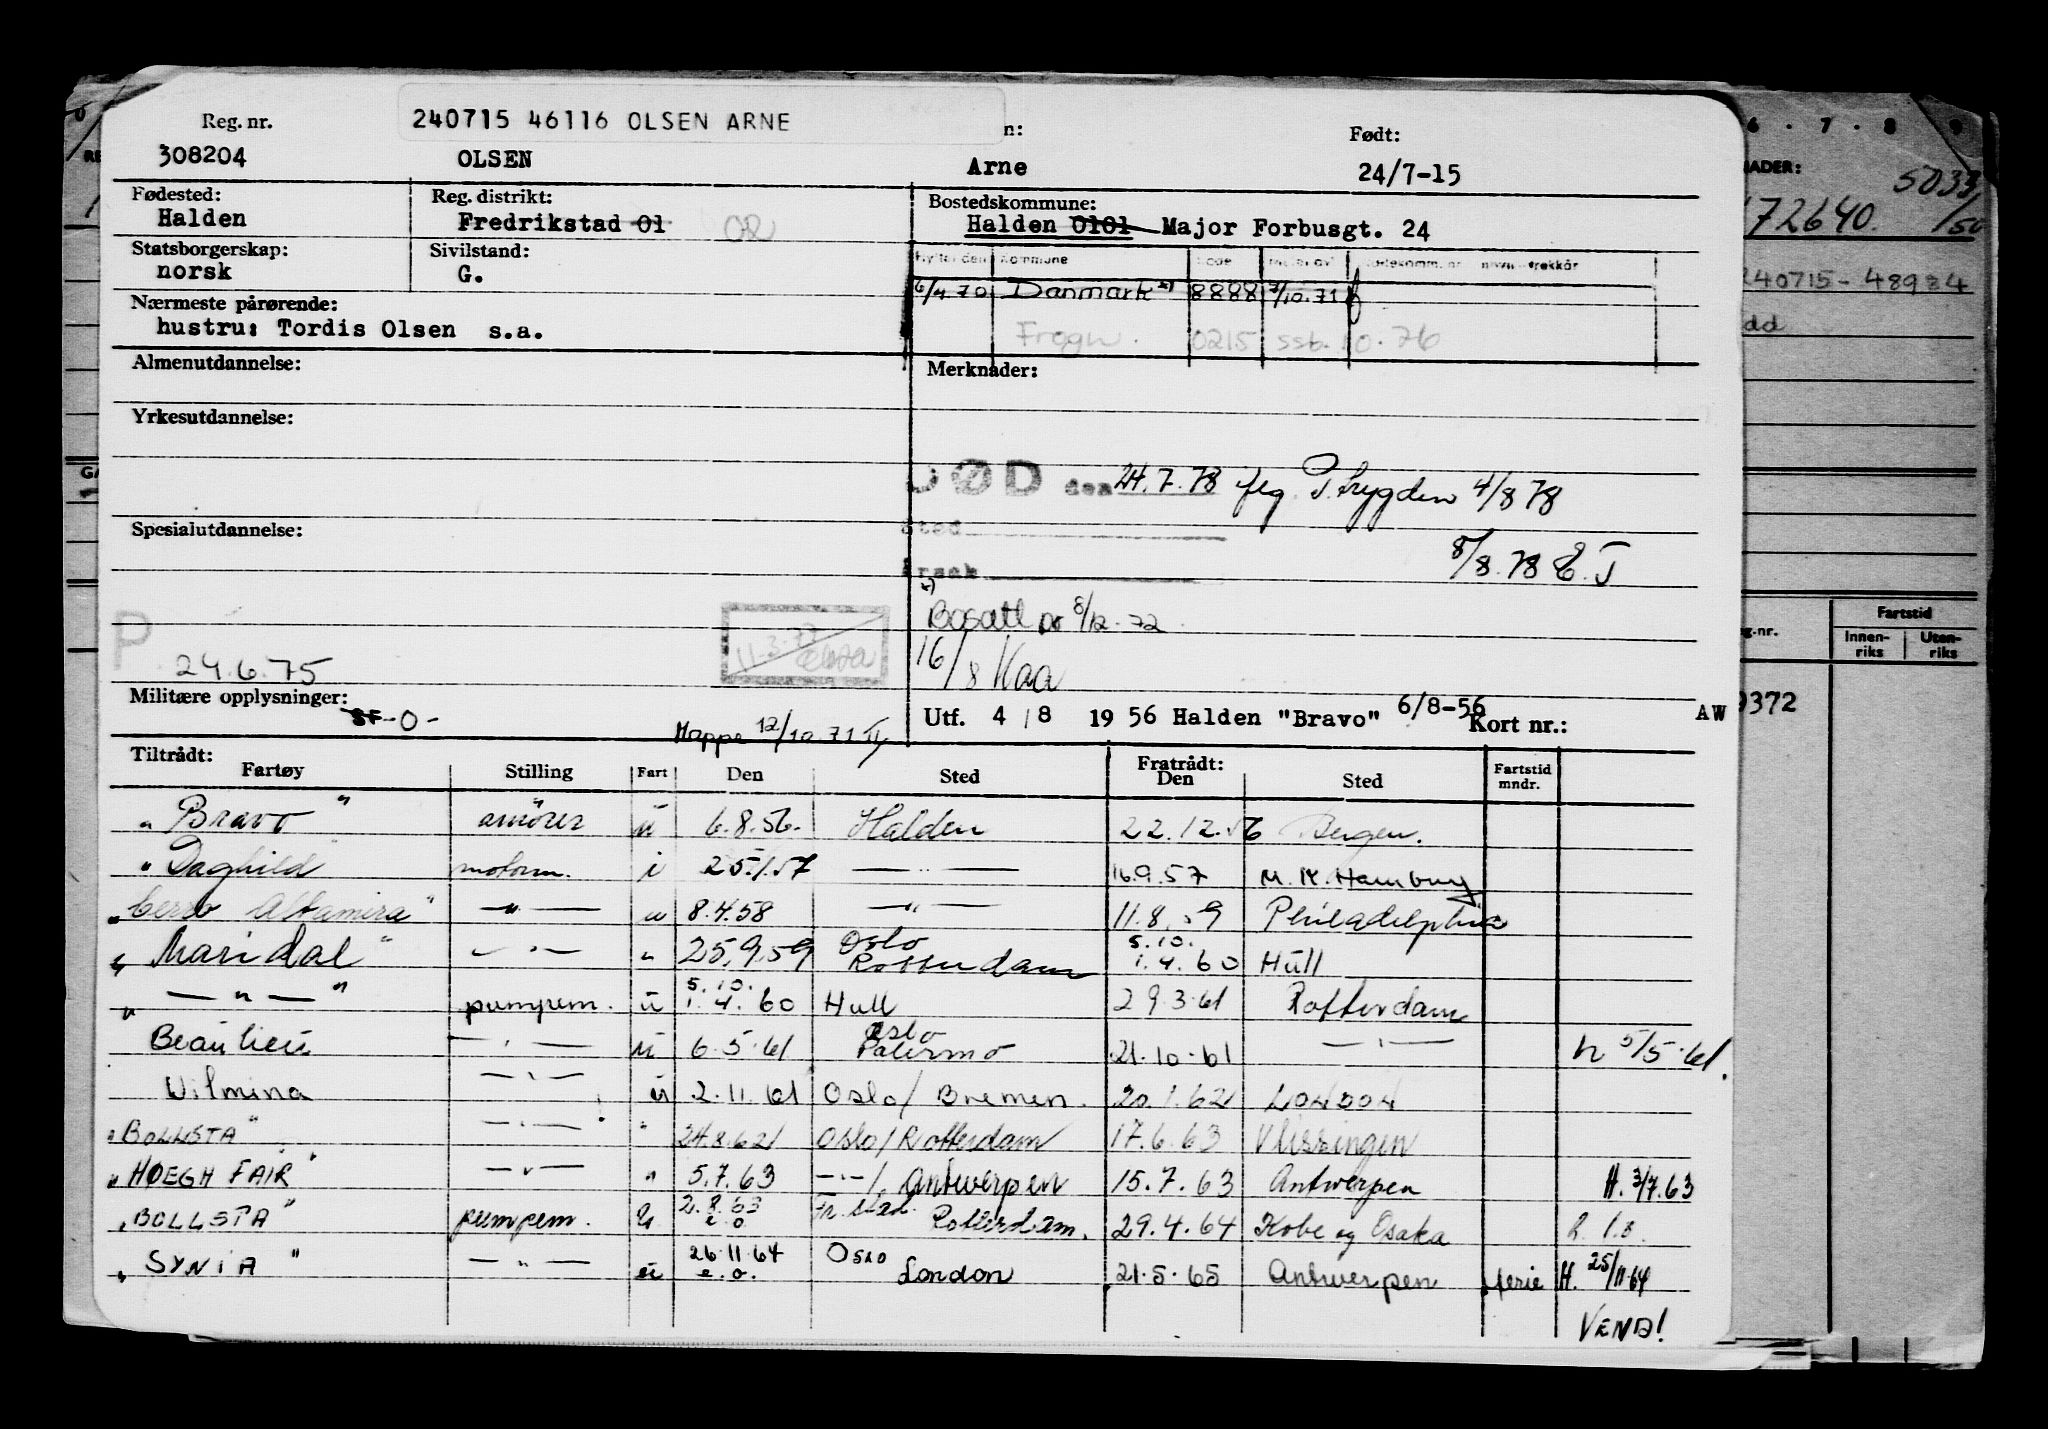 Reg. nr. 240715 46116 OLSEN ARNE n: Født:
308204 OLSEN Arne 24/7-15
Fødested: Reg. distrikt: Bostedskommune:
Halden Fredrikstad 01 02 Halden 0101 Major Forbusgt. 24
Statsborgerskap: Sivilstand:
norsk G.
6/4.70 Danmark x) 8888 7/10.71
Nærmeste pårørende:
hustru: Tordis Olsen s.a. Frogn. 0215 ssb. 10.76
Almenutdannelse: Merknader:
Yrkesutdannelse:
DØD den 24.7.78 flg. P.trygden 4/8 78
Spesialutdannelse: Sted
8/8.78 E.J
Årsak
x)
Bosatt 8/12.72
P. 24.6.75 11-3-77
16/8 Kaa
Militære opplysninger:
SF -0- Mappe 12/10.71
Utf. 4/8 1956 Halden "Bravo" 6/8-56 Kort nr.: AW
Tiltrådt: Fratrådt:
Fartøy Stilling Fart Den Sted Den Sted Fartstid mndr.
"Bravo" smører u 6.8.56. Halden 22.12.56 Bergen.
"Daghild motorm. i 25.1.57 — " — 16.9.57 M.K. Hamburg
"Cerro Altamira" — " — u 8.4.58 — " — 11.8.59 Philadelphia
"Maridal" — " — " 25.9.59 Oslo Rotterdam 5.10. 1.4.60 Hull
" — " — " pumpem. u 5.10. 1.4.60 Hull 29.3.61 Rotterdam
Beaulieu — " — u 6.5.61 Oslo Palermo 21.10.61 — " — h 5/5.61.
Wilmina — " — u 2.11.61 Oslo/Bremen. 20.1.62 London
"BOLLSTA" — " — " 24.8.62 Oslo/Rotterdam 17.6.63 Vlissingen
"HØEGH FAIR" — " — " 5.7.63 — " —/. Antwerpen 15.7.63 Antwerpen H. 3/7.63
"BOLLSTA" pumpem. u. 2.8.63 e.o. Fr.stad. Rotterdam. 29.4.64 Kobe og Osaka h. 1.8.
"SYNIA" — " — u 26.11.64 e.o. Oslo London 21.5.65 Antwerpen ferie H. 25/11.64
VEND!
6 . 7 . 8 . 9
NADER:
5033/50
172640.
240715-48934
dd
g.nr. Fartstid
Innen-riks Uten-riks
9372